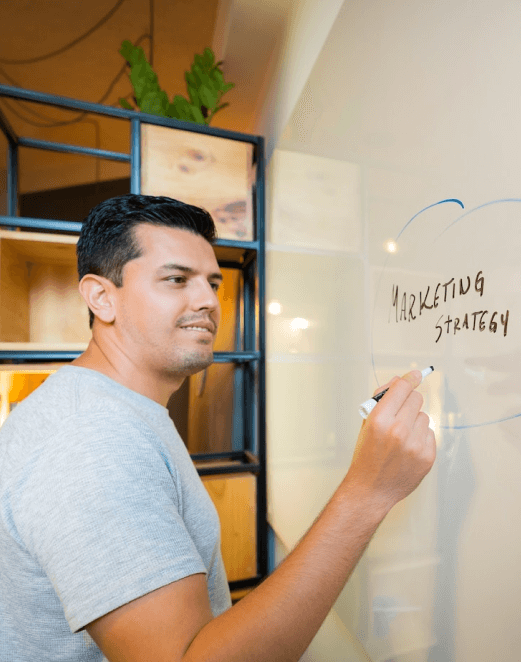 MARKETING
STRATEGY